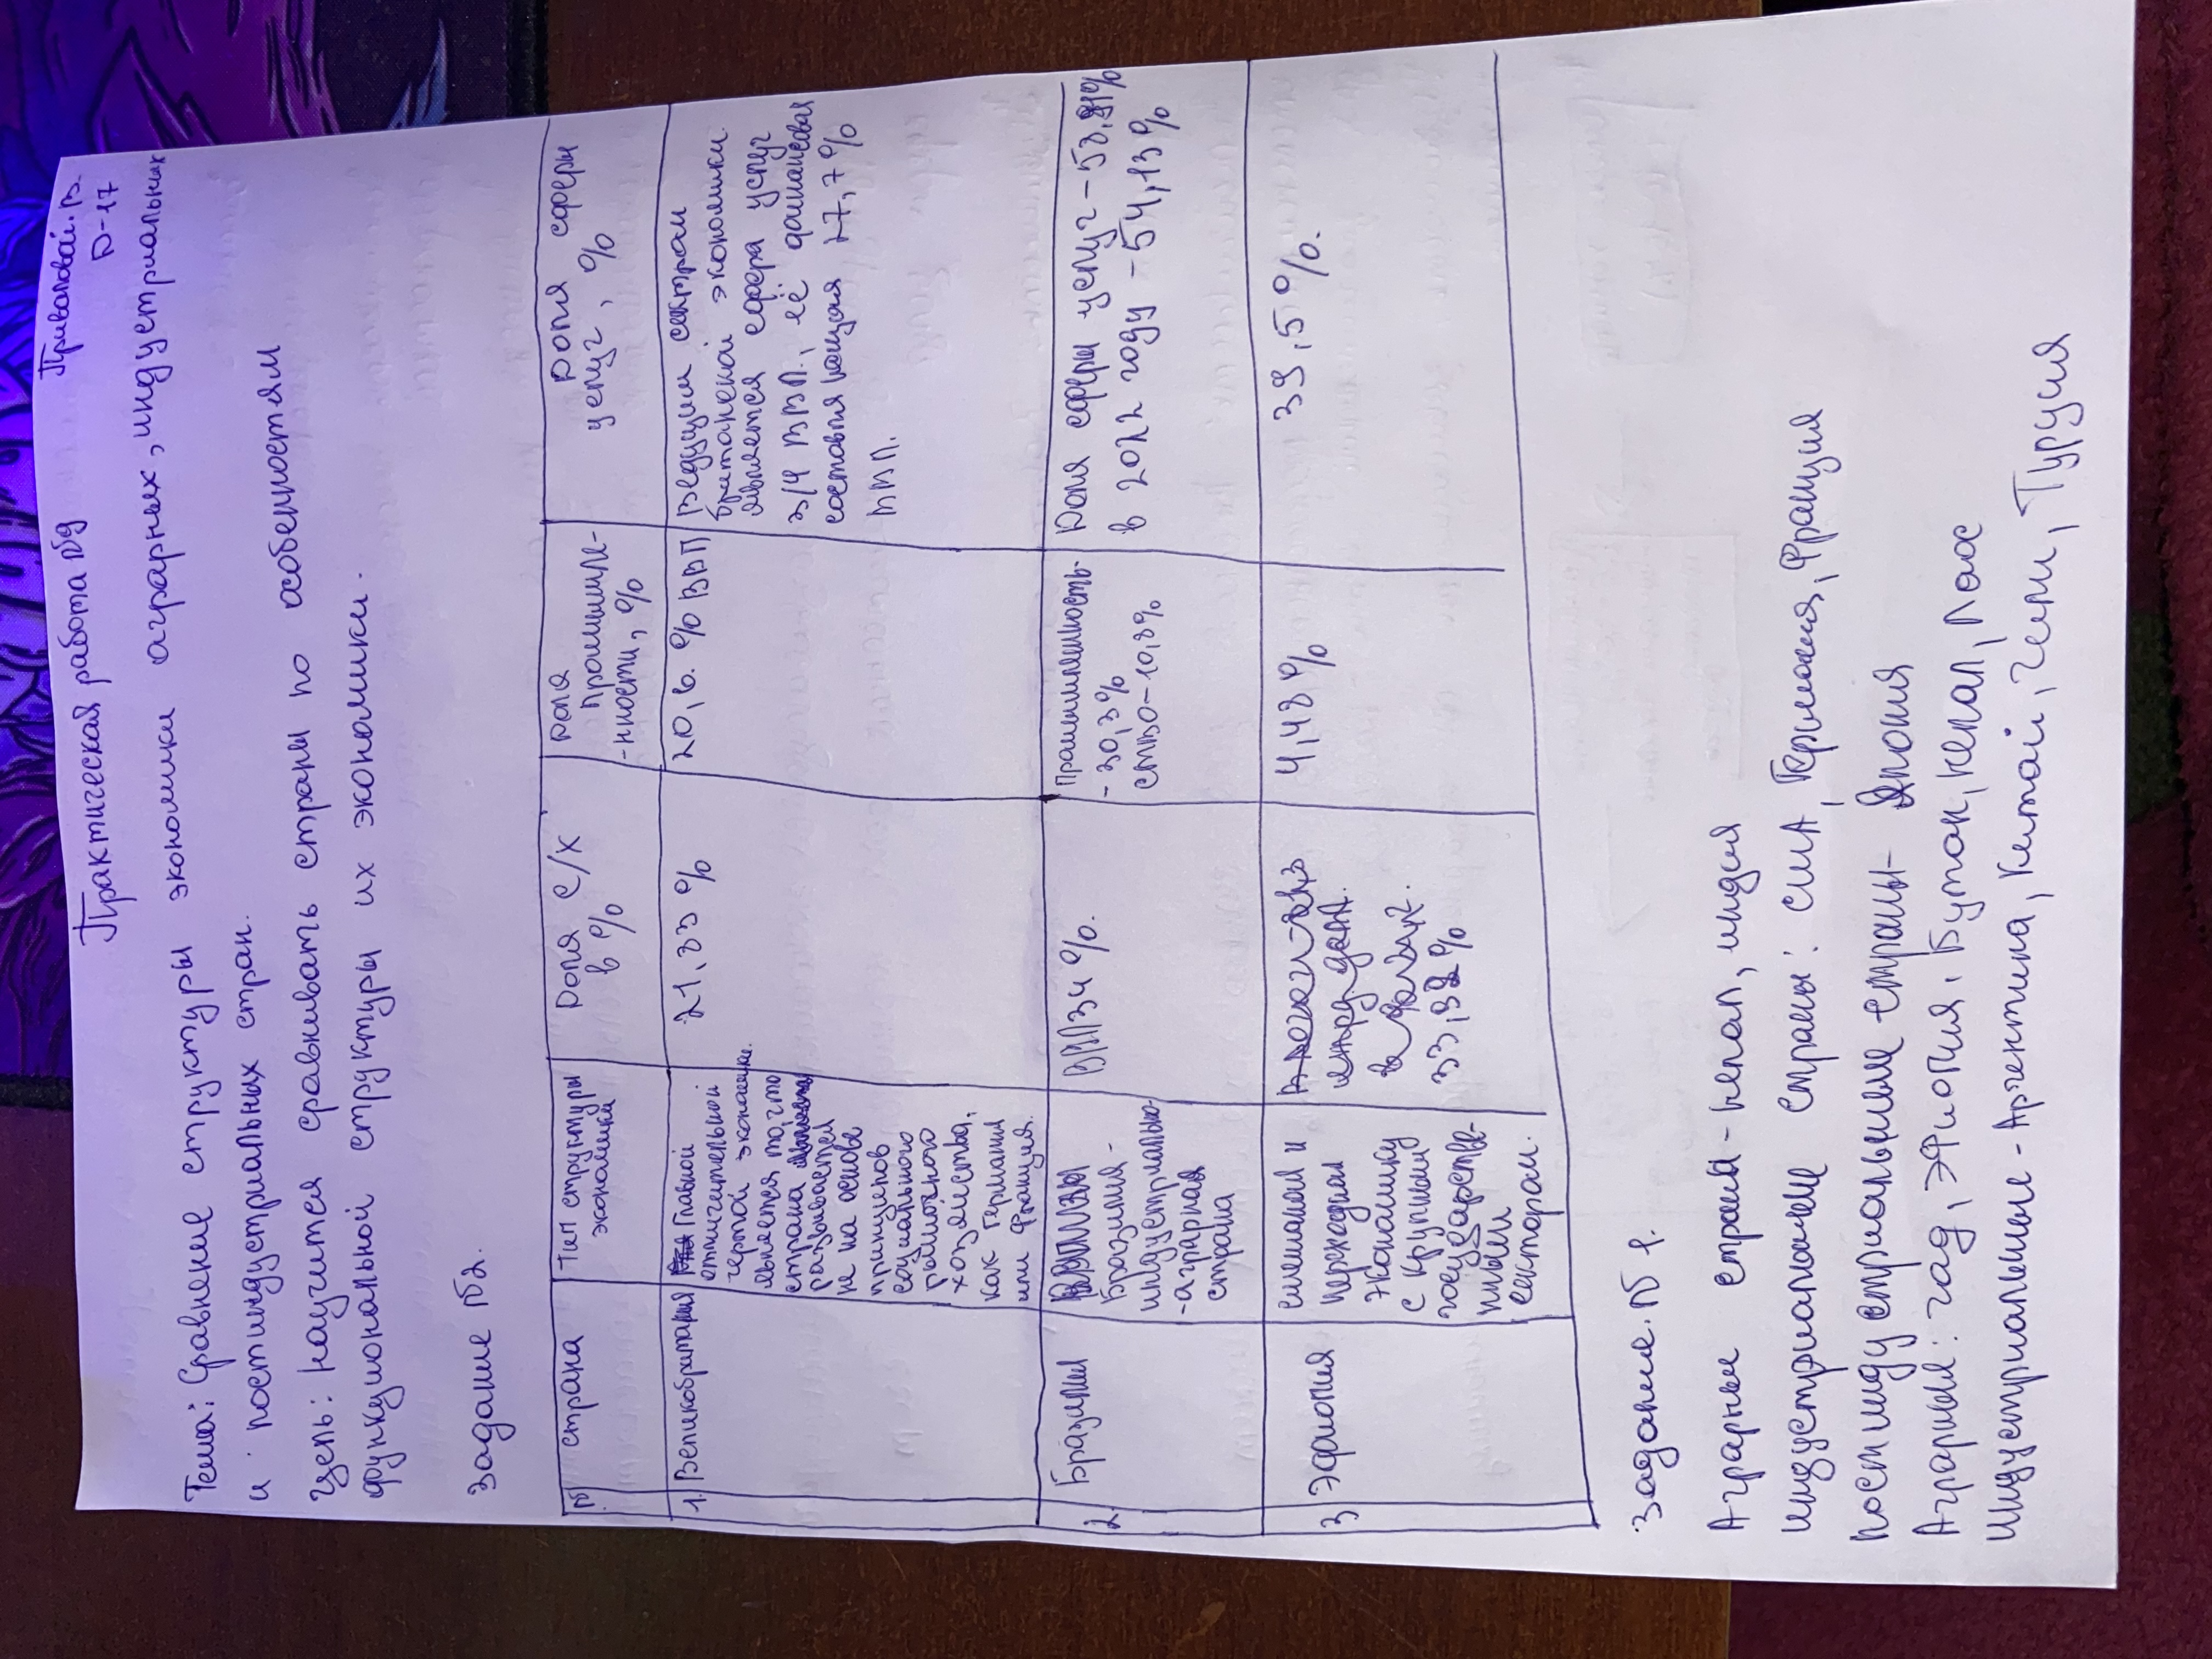 Практическая работа №9
Приваловой. В.
D-17
Тема: Сравнение структуры экономики аграрных, индустриальных
и постиндустриальных стран.
Цель: научится сравнивать страны по особенностям
функциональной структуры их экономики.
Задание №2.
№ страна Тип структуры экономики Доля с/х в % Доля промышле-нности, % Доля сферы услуг, %
1. Великобритания
Главной
отличительной
чертой экономике.
является то, что
страна
развивается
не на основе
принципов
социального
рыночного
хозяйства,
как Германия
или Франция.
21,83 %
20,6. % ВВП
Ведущим сектрам
британской экономики
является сфера услуг
3/4 ВВП, её финансовая
составляющая 27,7 %
ВВП.
2. Бразилия
Бразилия -
индустриально-
-аграрная
страна
34 %.
Промышленность-
- 30,3%
ство-10,8%
Доля сферы услуг - 58,91%
в 2022 году - 54,13 %
3 Эфиопия
смешаной и
переходная
экономику
с крупным
государстве-
нным
сектарам.
33,92 %
4,48 %
39,5 %.
Задание. № 1.
Аграрные страны - непал, индия
индустриальные страны: США, Германия, Франция
постиндустриальные страны- Япония
Аграрный: Чад, Эфиопия, Бутан, непал, Лаос
Индустриальные - Аргентина, Китай, Чили, Турция